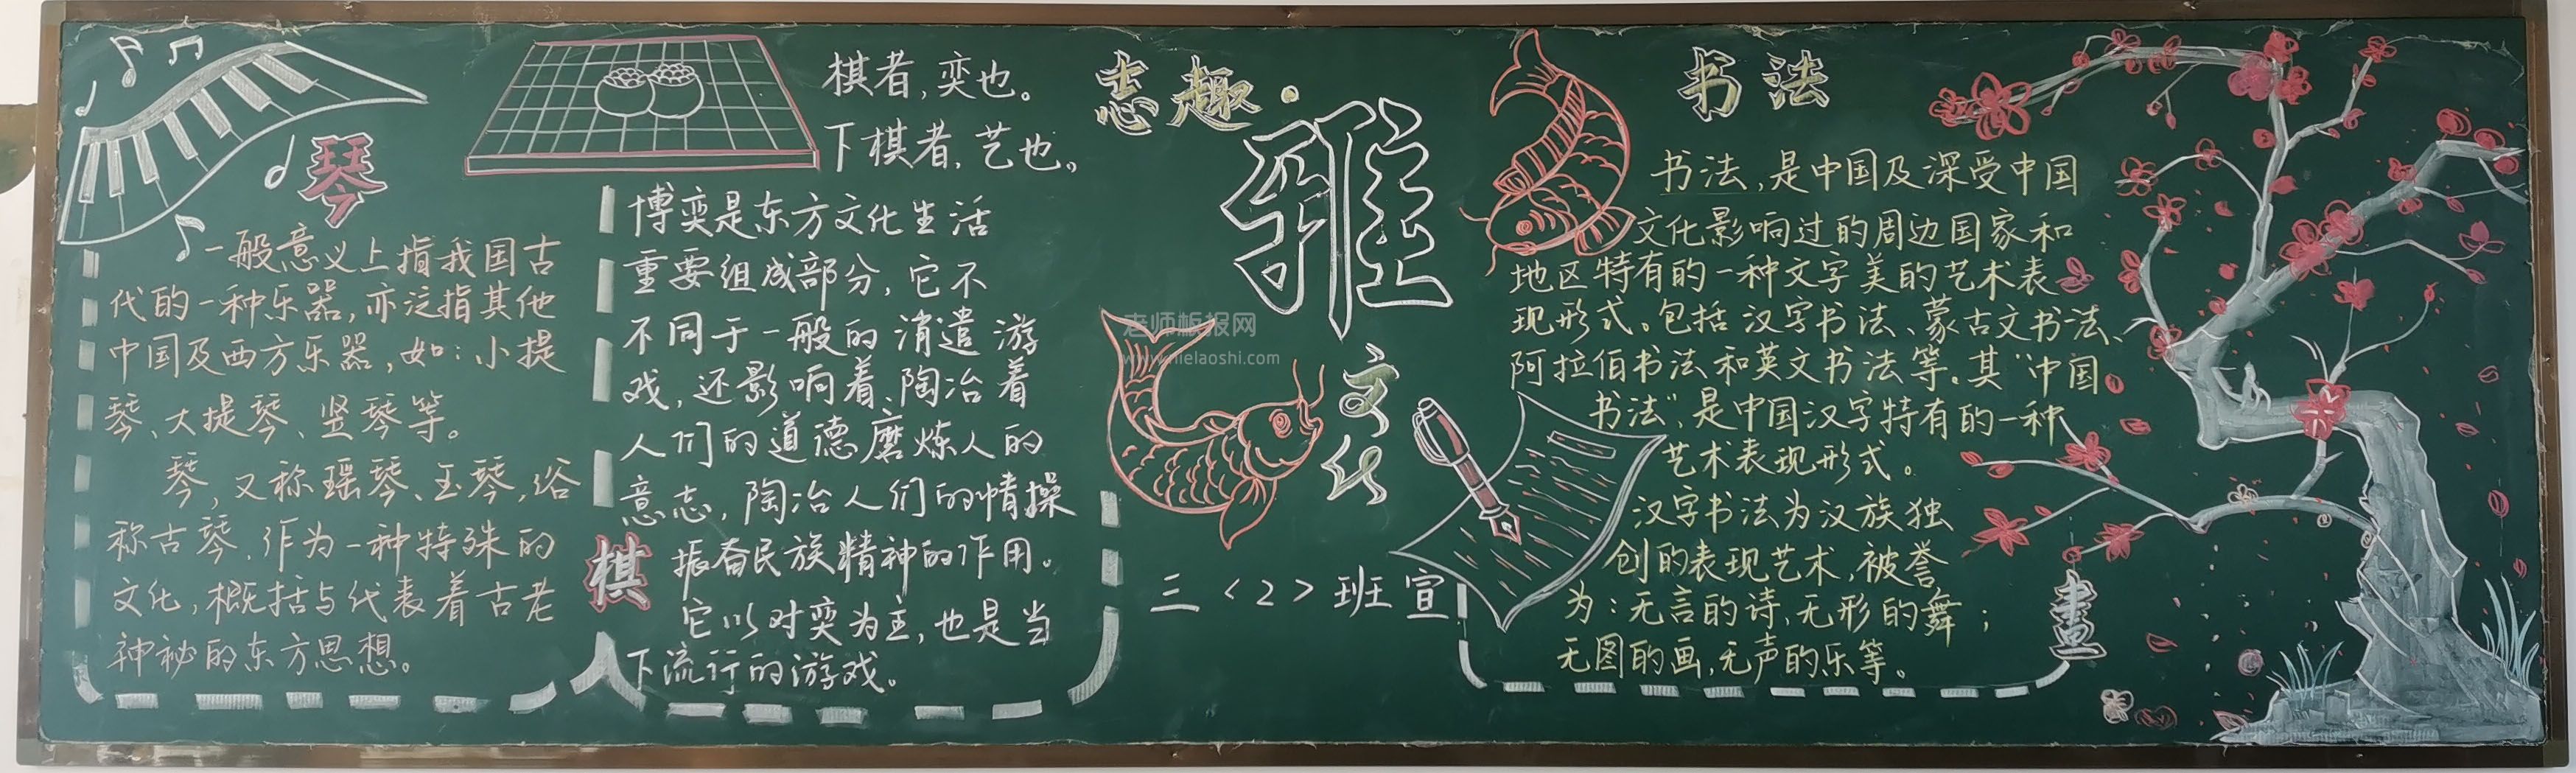 琴
一般意义上指我国古
代的一种乐器，亦泛指其他
中国及西方乐器，如：小提
琴、大提琴、竖琴等。
琴，又称瑶琴、玉琴，俗
称古琴，作为一种特殊的
文化，概括与代表着古老
神秘的东方思想。
棋者，奕也。
下棋者，艺也。
棋
博奕是东方文化生活
重要组成部分，它不
不同于一般的消遣游
戏，还影响着、陶冶着
人们的道德磨炼人的
意志，陶冶人们的情操
振奋民族精神的作用。
它以对奕为主，也是当
下流行的游戏。
志趣·
雅
文化
老师板报网
三〈2〉班宣
书法
书法，是中国及深受中国
文化影响过的周边国家和
地区特有的一种文字美的艺术表
现形式。包括汉字书法、蒙古文书法、
阿拉伯书法和英文书法等。其“中国
书法”，是中国汉字特有的一种
艺术表现形式。
汉字书法为汉族独
创的表现艺术，被誉
为：无言的诗，无形的舞；
无图的画，无声的乐等。
畫